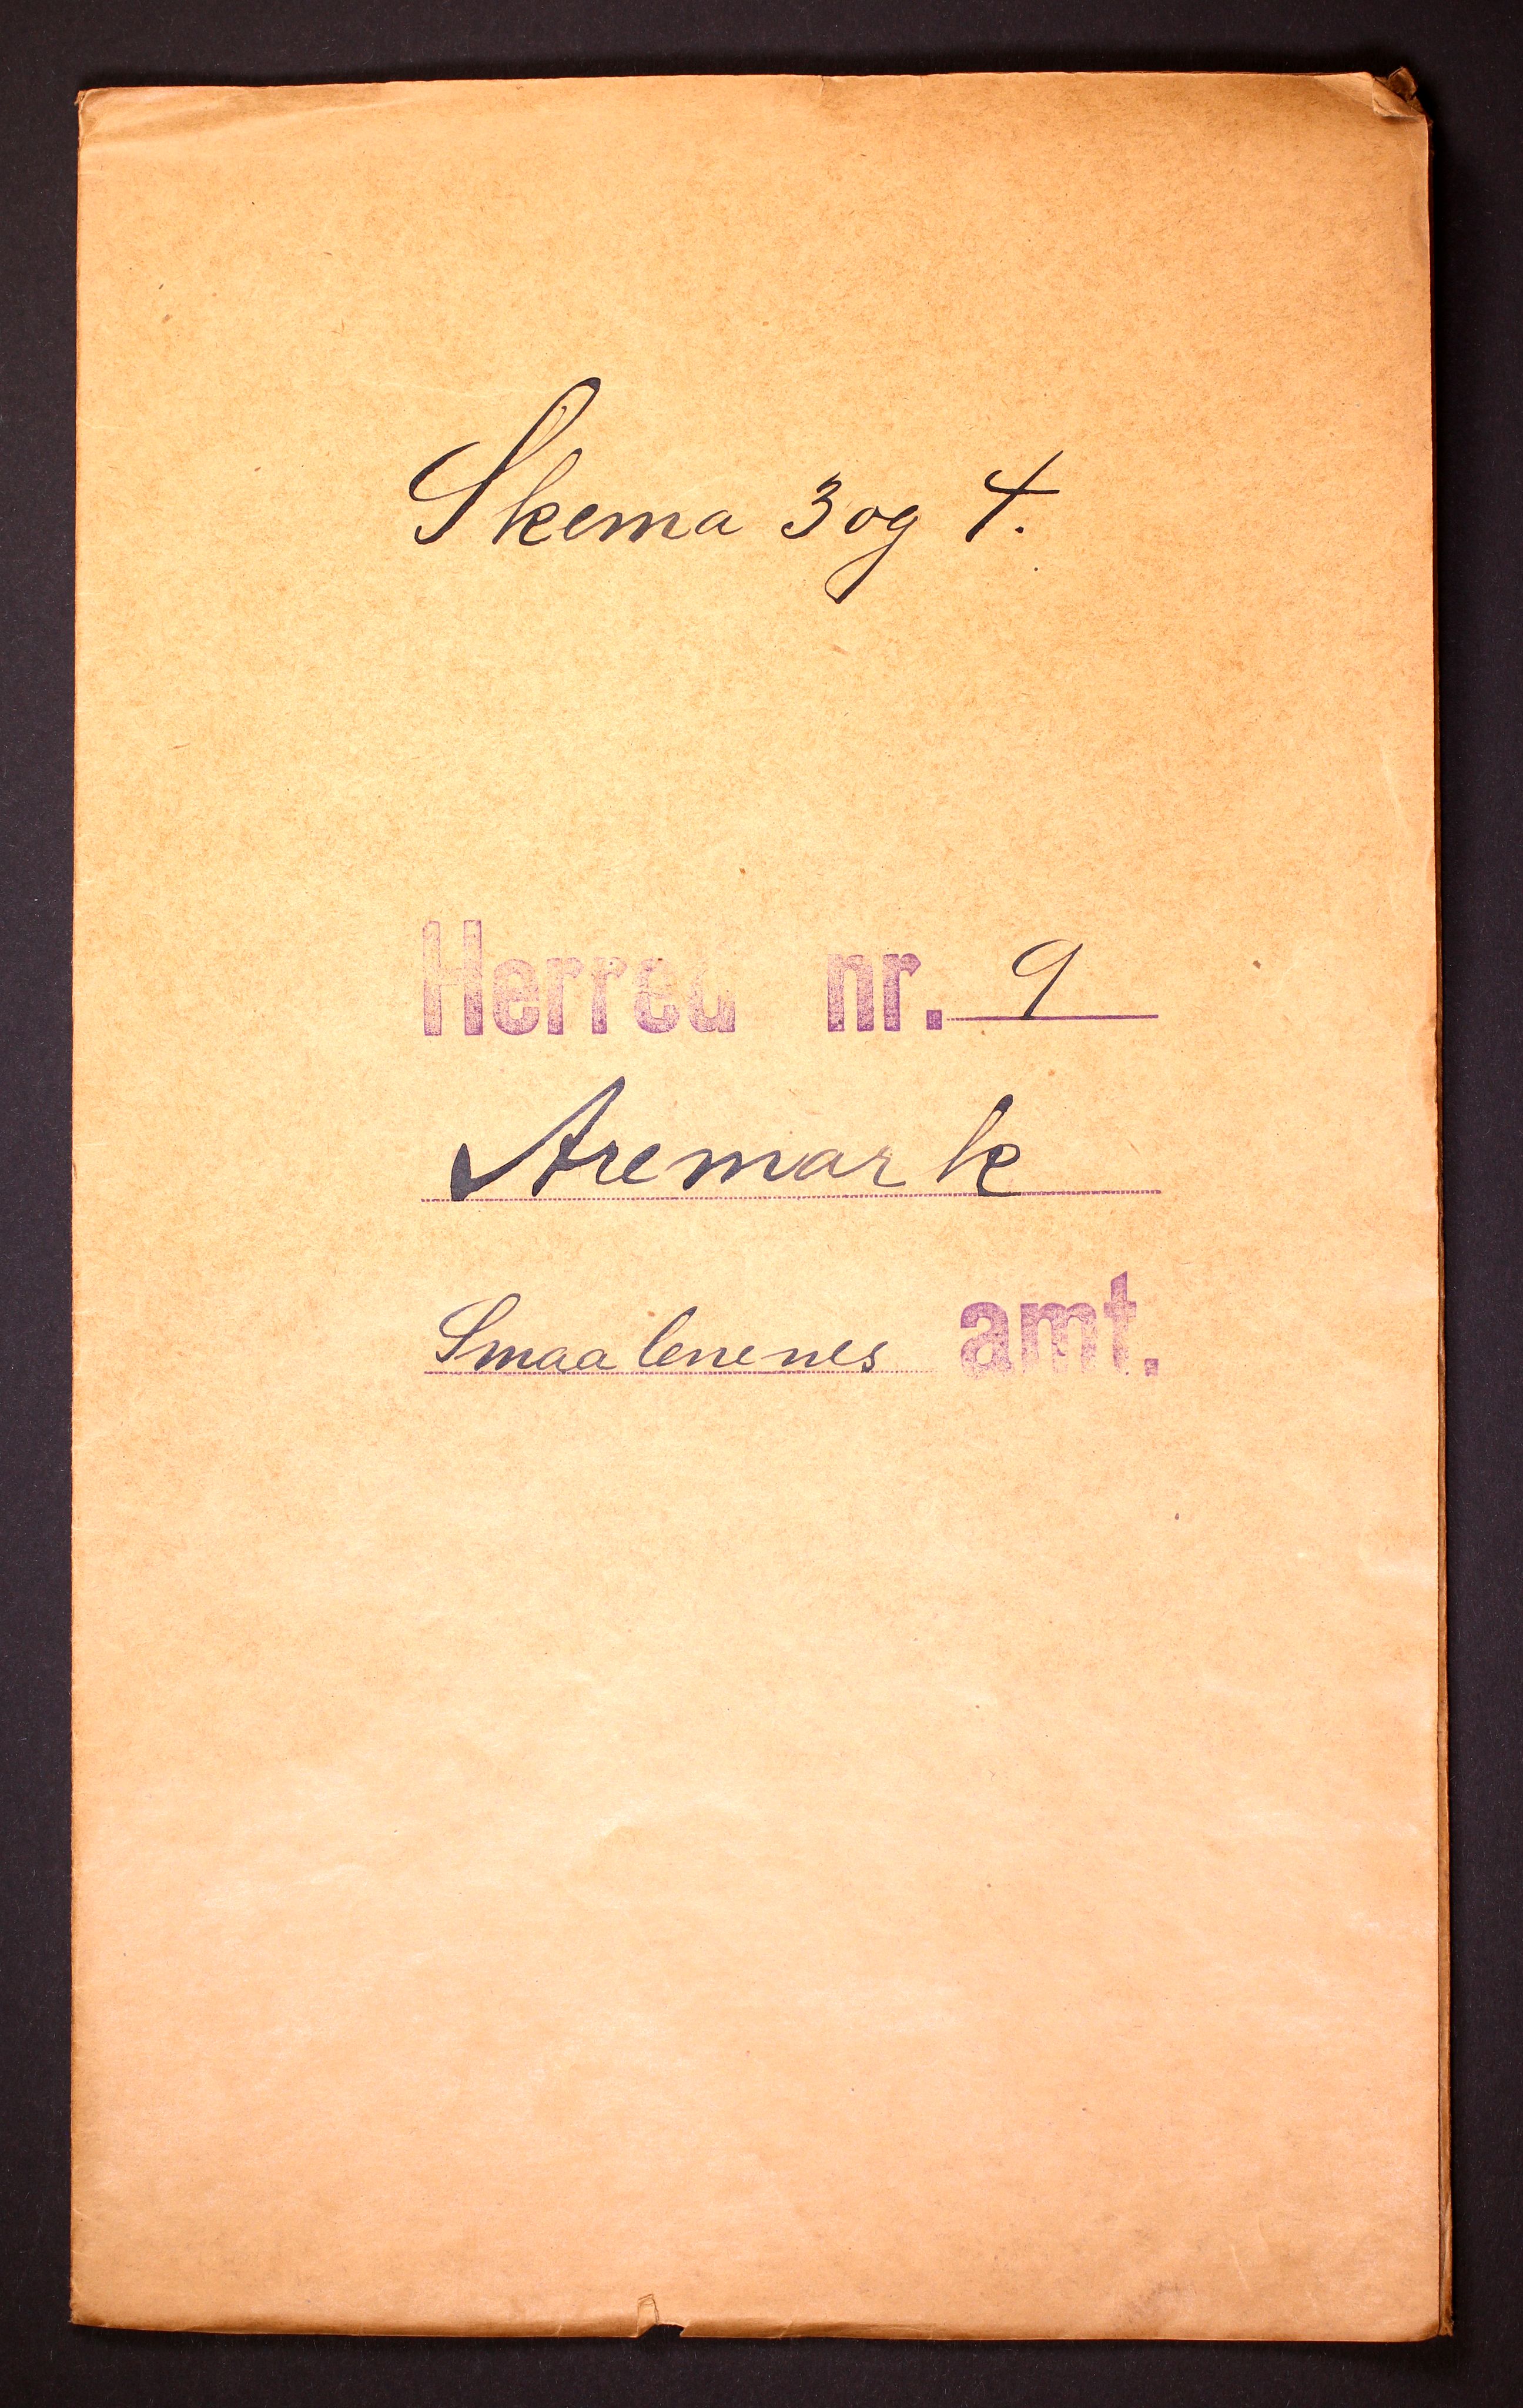 Skema 3 og 4.
Herred nr. 9
Aremark
Smaalenenes amt.